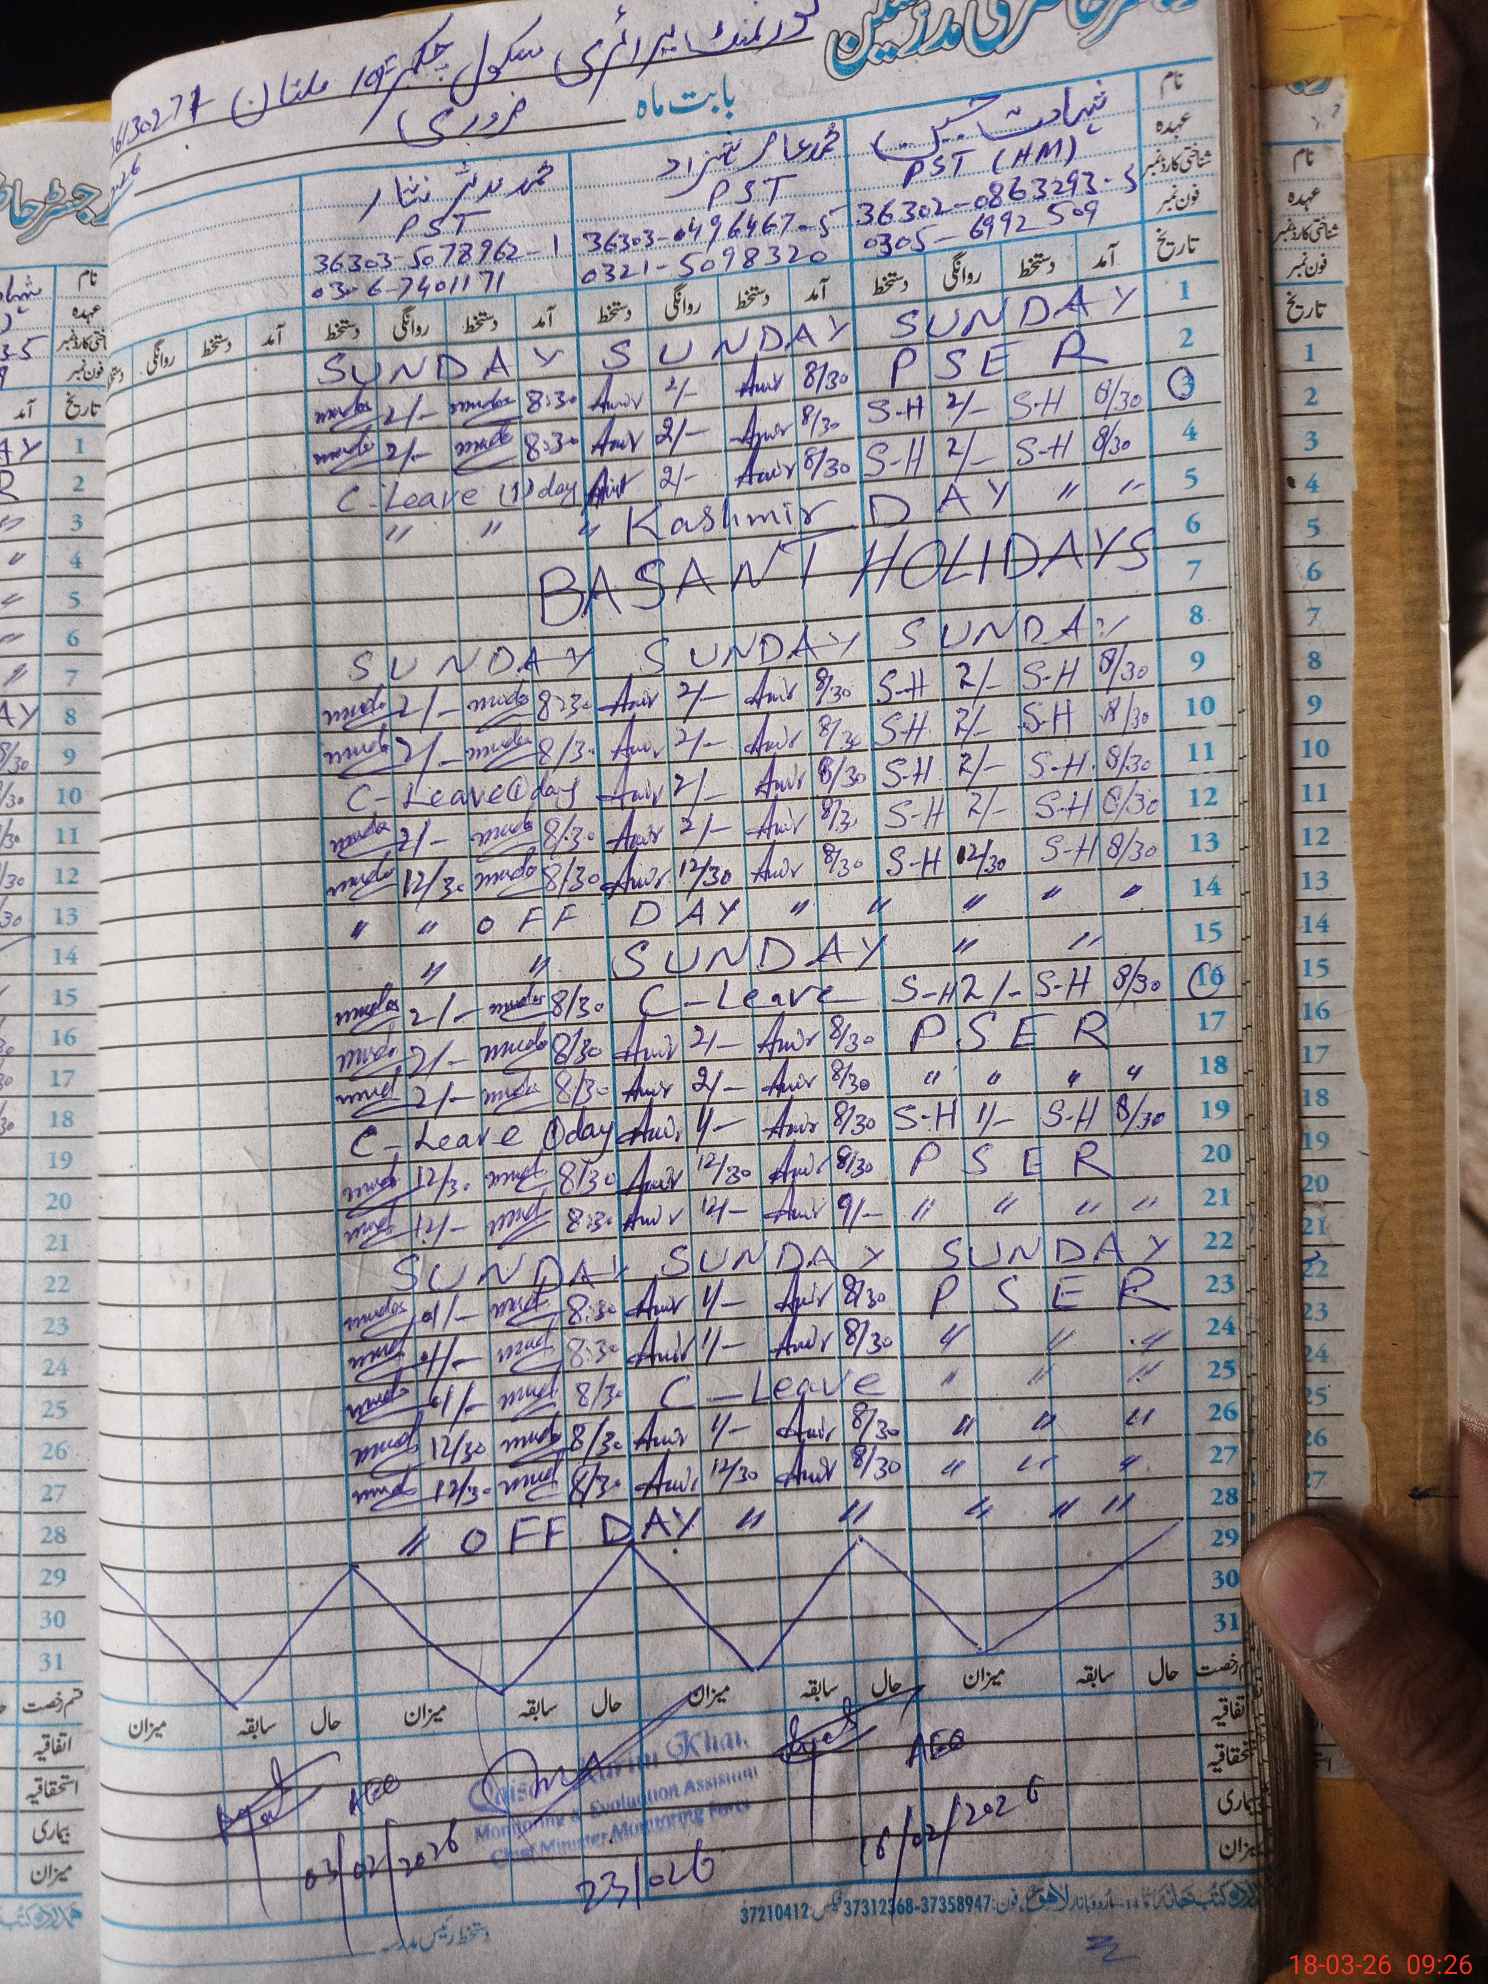 رجسٹر حاضری مدرسین
گورنمنٹ پرائمری سکول چک نمبر 10 ملتان 36130277
بابت ماہ فروری
نام شہادت حسین محمد عامر شہزاد محمد مدثر نثار
عہدہ PST (HM) PST PST
شناختی کارڈ نمبر 36302-0863293-5 36303-0496467-5 36303-5078962-1
فون نمبر 0305-6992509 0321-5098320 0306-7401171
تاریخ آمد دستخط روانگی دستخط آمد دستخط روانگی دستخط آمد دستخط روانگی دستخط آمد دستخط روانگی
SUNDAY SUNDAY SUNDAY 1
2/- 8:30 Amir 2/- Amir 8/30 PSER 2
2/- 8:30 Amir 2/- Amir 8/30 S-H 2/- S-H 8/30 3
C-Leave (1) day Amir 2/- Amir 8/30 S-H 2/- S-H 8/30 4
" " " Kashmir DAY " " 5
6
BASANT HOLIDAYS 7
SUNDAY SUNDAY SUNDAY 8
2/- 8:30 Amir 2/- Amir 8/30 S-H 2/- S-H 8/30 9
2/- 8/30 Amir 2/- Amir 8/30 S-H 2/- S-H 8/30 10
C-Leave (1) day Amir 2/- Amir 8/30 S-H 2/- S-H 8/30 11
2/- 8/30 Amir 2/- Amir 8/30 S-H 2/- S-H 8/30 12
12/30 8/30 Amir 12/30 Amir 8/30 S-H 12/30 S-H 8/30 13
" " OFF DAY " " " " " 14
" " SUNDAY " " 15
2/- 8/30 C-Leave S-H 2/- S-H 8/30 16
2/- 8/30 Amir 2/- Amir 8/30 PSER 17
2/- 8/30 Amir 2/- Amir 8/30 " " " " 18
C-Leave (1) day Amir 1/- Amir 8/30 S-H 1/- S-H 8/30 19
12/30 8/30 Amir 12/30 Amir 8/30 PSER 20
12/- 8:30 Amir 12/- Amir 9/- " " " " 21
SUNDAY SUNDAY SUNDAY 22
01/- 8:30 Amir 1/- Amir 8/30 PSER 23
01/- 8:30 Amir 1/- Amir 8/30 " " " 24
01/- 8/30 C-Leave " " " 25
12/30 8/30 Amir 1/- Amir 8/30 " " " 26
12/30 8/30 Amir 12/30 Amir 8/30 " " " 27
" OFF DAY " " " " " 28
29
30
31
قسم رخصت حال سابقہ میزان حال سابقہ میزان حال سابقہ میزان حال سابقہ میزان
اتفاقیہ
استحقاقیہ
بیماری
میزان
AEO
03/02/2026
Khan
Monitoring & Evaluation Assistant
Chief Minister Monitoring Force
23/026
AEO
16/02/2026
فون: 37358947-37312368 فیکس: 37210412
دستخط رئیس مدرسہ
18-03-26 09:26